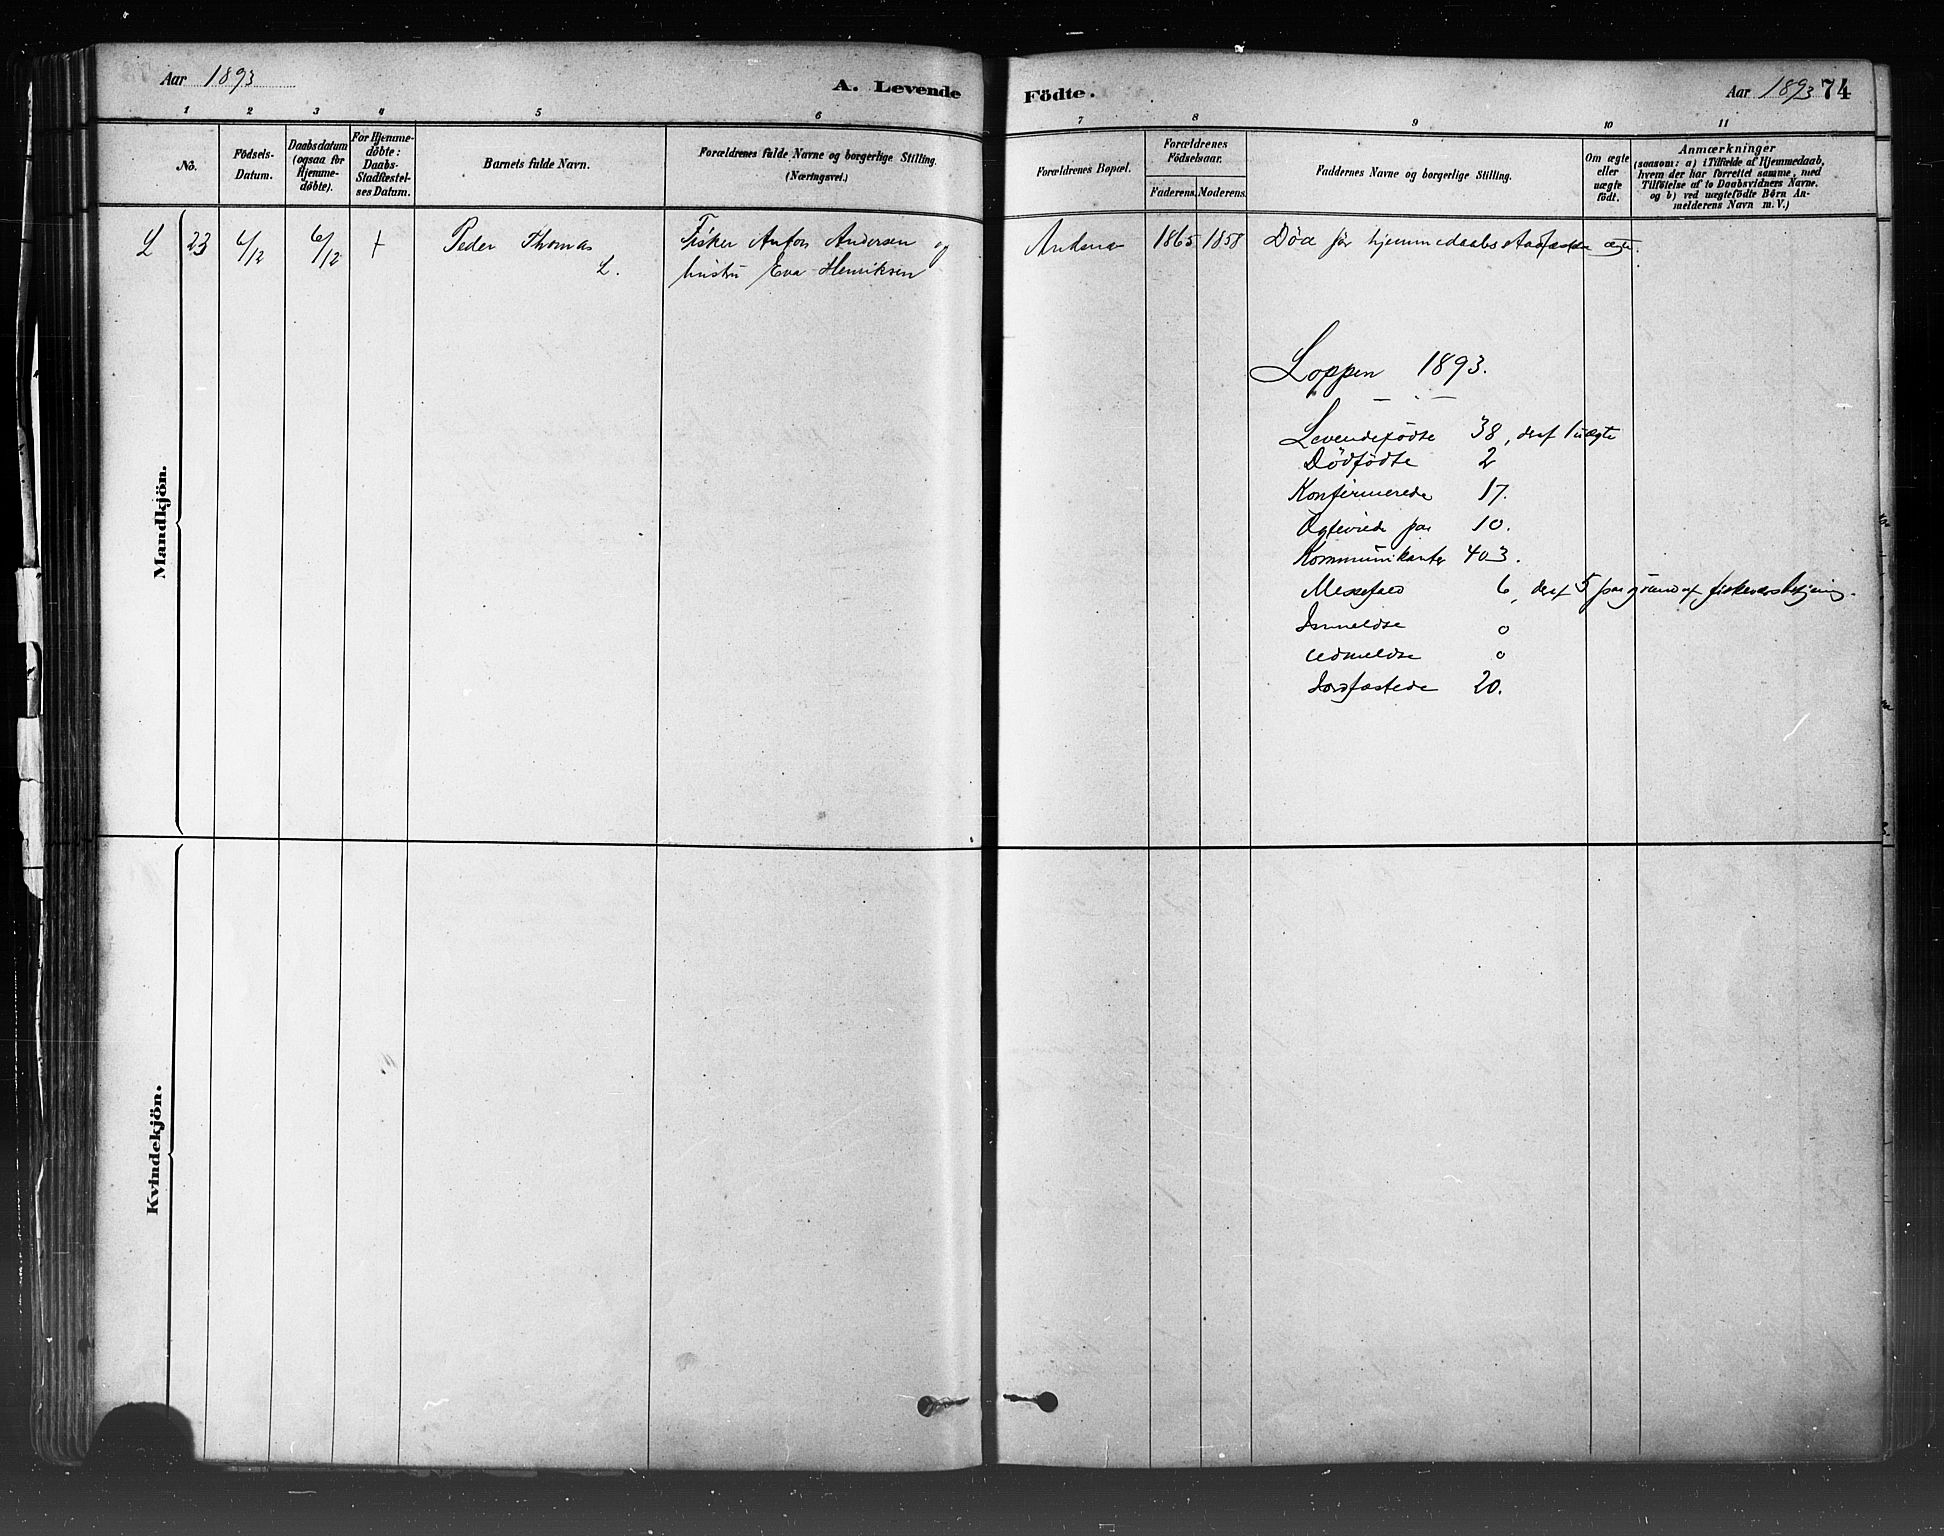 Aar 1893
A. Levende
Födte.
Aar 1893 74
1 2 3 4 5 6 7 8 9 10 11
No.
Födsels-
Datum.
Daabsdatum
(ogsaa for
Hjemme-
døbte).
For Hjemme-
døbte:
Daabs-
Stadfæstel-
ses Datum.
Barnets fulde Navn.
Forældrenes fulde Navne og borgerlige Stilling.
(Næringsvei.)
Forældrenes Bopæl.
Forældrenes
Födselsaar.
Faderens. Moderens.
Faddernes Navne og borgerlige Stilling.
Om ægte
eller
uægte
født.
Anmærkninger
(saasom: a) i Tilfælde af Hjemmedaab,
hvem der har forrettet samme, med
Tilföielse af to Daabsvidners Navne.
og b) ved uægtefödte Börn An-
melderens Navn m. V.)
L 23 6/12 6/12 + Peder Thomas Fisker Anton Andersen og 1865 1858 Död før hjemmedaabs ægte.
L. hustru Eva Henriksen
Mandkjön.
Loppen 1893.
Levendefödte 38, deraf 1 uægte
Dödfödte 2
Konfirmerede 17.
Ægteviede par 10.
Kommunikanter 403.
Messefald 6, deraf 5 paa grund af
Inmeldte 0
Udmeldte 0
Jordfæstede 20.
Kvindekjön.